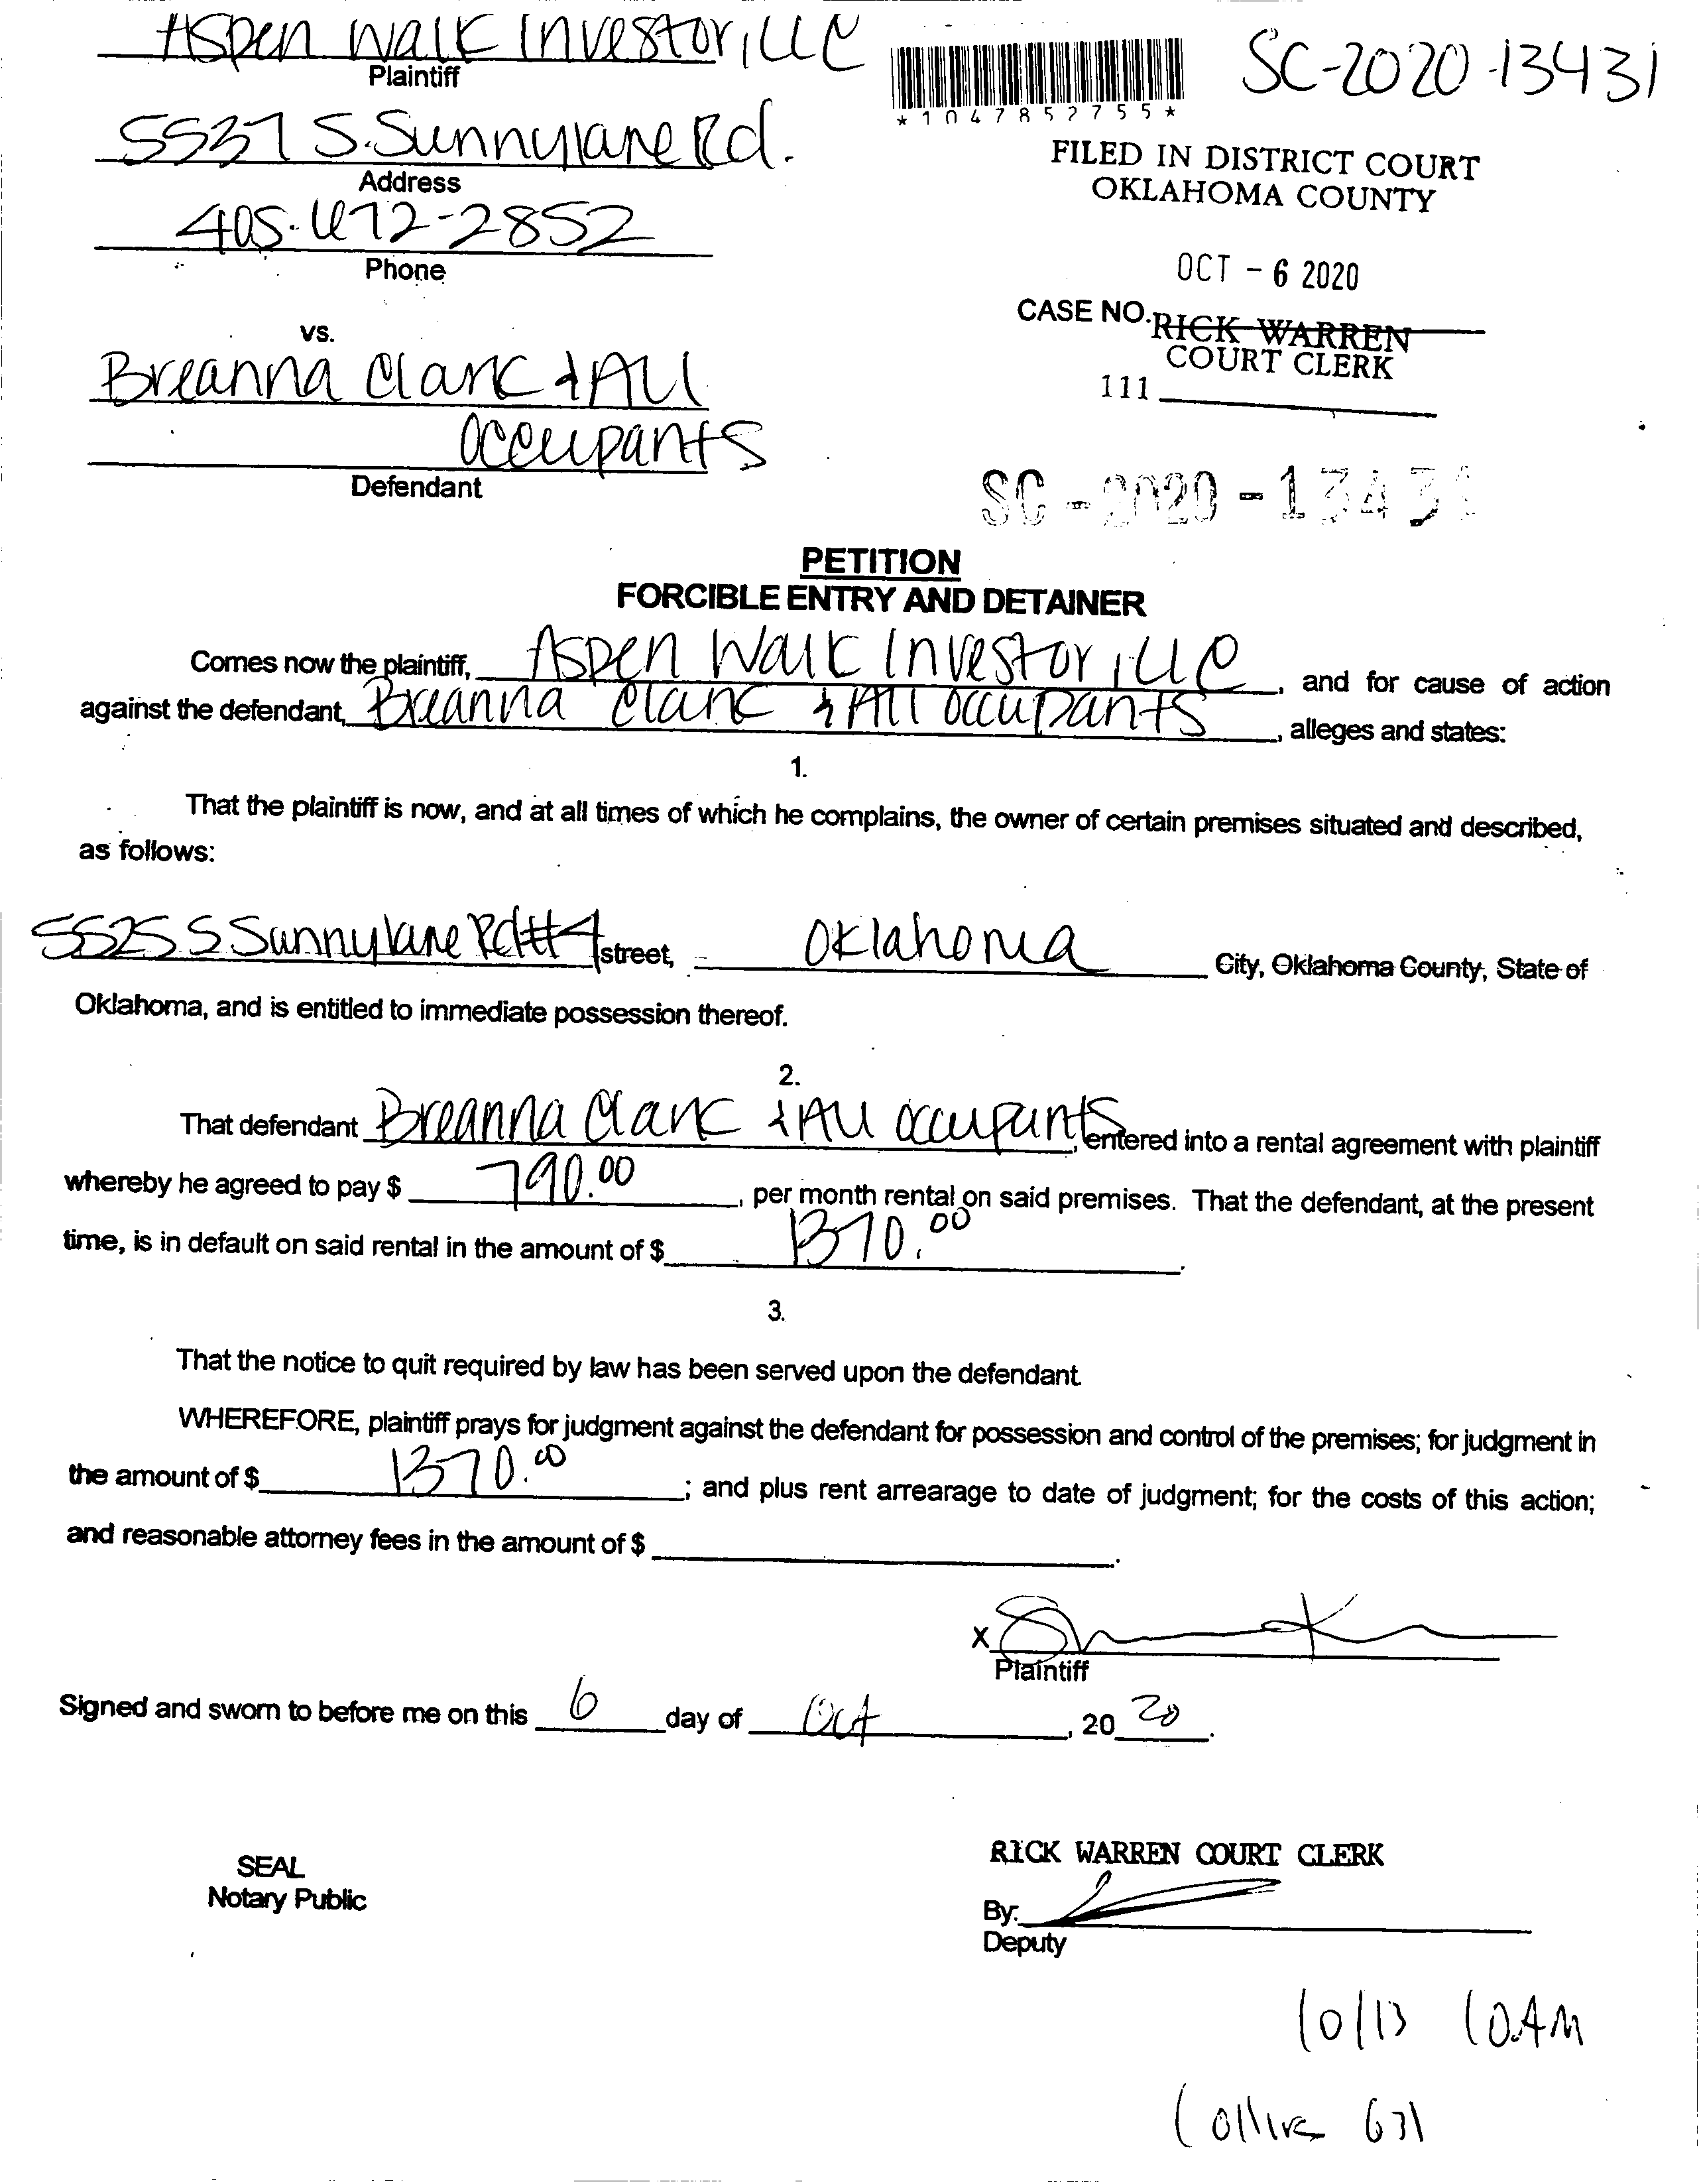 Aspen Walk Investor, LLC
Plaintiff
SC-2020-13431
*1047852755*
5537 S. Sunnylane Rd.
Address
FILED IN DISTRICT COURT
OKLAHOMA COUNTY
405-672-2852
Phone
OCT - 6 2020
vs.
CASE NO.
RICK WARREN
COURT CLERK
111
Breanna Clark & All
Occupants
Defendant
SC-2020-13431
PETITION
FORCIBLE ENTRY AND DETAINER
Comes now the plaintiff, Aspen Walk Investor, LLC, and for cause of action
against the defendant, Breanna Clark & All occupants, alleges and states:
1.
That the plaintiff is now, and at all times of which he complains, the owner of certain premises situated and described,
as follows:
5525 S Sunnylane Rd #4 street, Oklahoma City, Oklahoma County, State of
Oklahoma, and is entitled to immediate possession thereof.
2.
That defendant Breanna Clark & All occupants, entered into a rental agreement with plaintiff
whereby he agreed to pay $ 790.00, per month rental on said premises. That the defendant, at the present
time, is in default on said rental in the amount of $ 1370.00.
3.
That the notice to quit required by law has been served upon the defendant.
WHEREFORE, plaintiff prays for judgment against the defendant for possession and control of the premises; for judgment in
the amount of $ 1370.00; and plus rent arrearage to date of judgment; for the costs of this action;
and reasonable attorney fees in the amount of $ .
X
Plaintiff
Signed and sworn to before me on this 6 day of Oct, 2020.
SEAL
Notary Public
RICK WARREN COURT CLERK
By:
Deputy
10/13 10AM
631